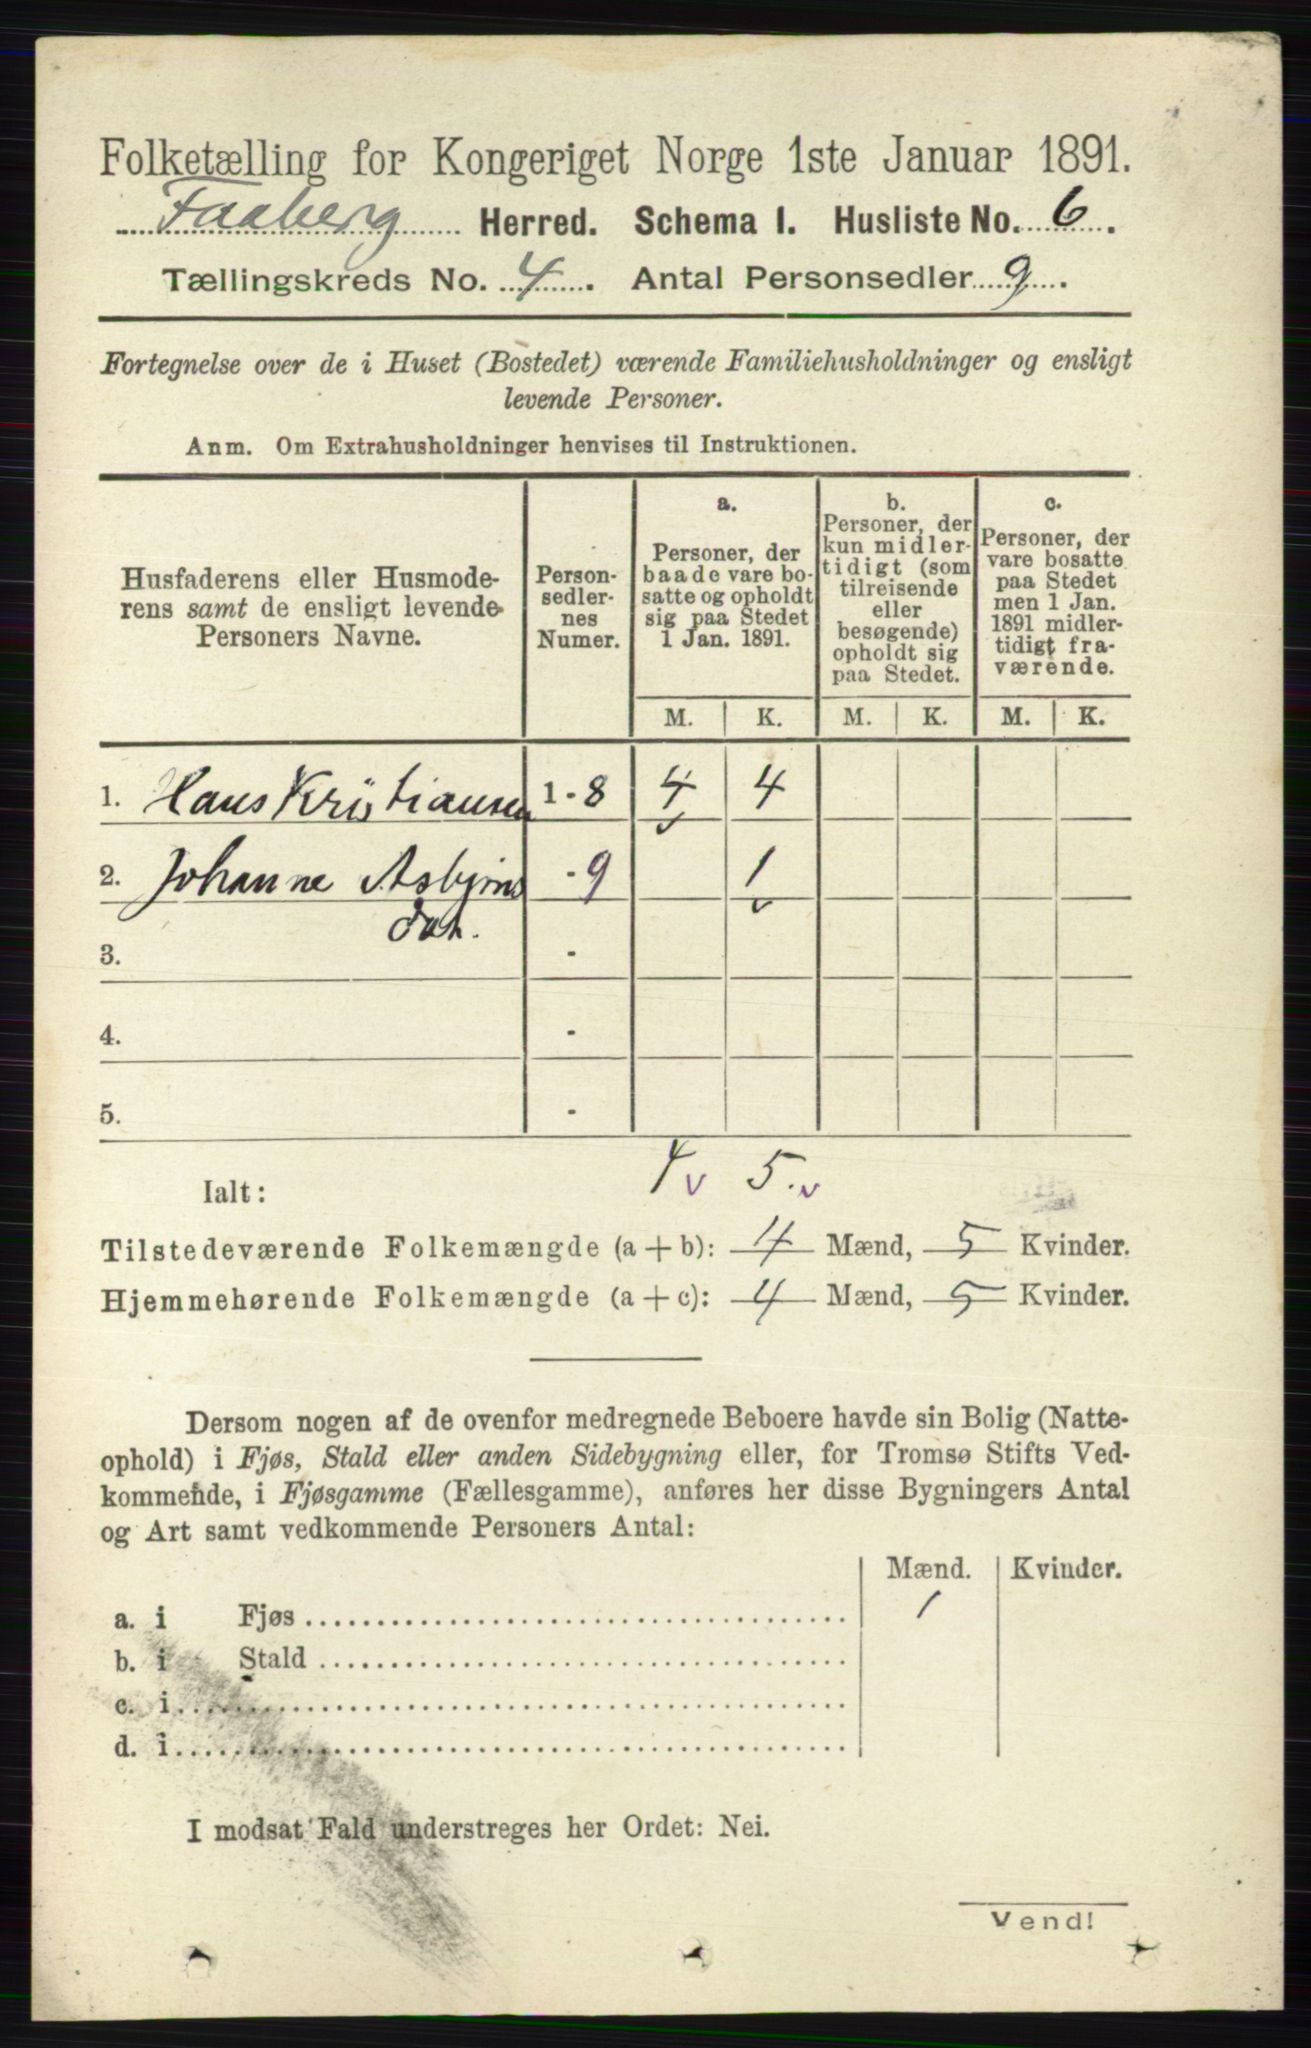 Folketælling for Kongeriget Norge 1ste Januar 1891.
Faaberg Herred. Schema I. Husliste No. 6.
Tællingskreds No. 4. Antal Personsedler 9.
Fortegnelse over de i Huset (Bostedet) værende Familiehusholdninger og ensligt
levende Personer.
Anm. Om Extrahusholdninger henvises til Instruktionen.
Husfaderens eller Husmode-
rens samt de ensligt levende
Personers Navne.
Person-
sedler-
nes
Numer.
a.
Personer, der
baade vare bo-
satte og opholdt
sig paa Stedet
1 Jan. 1891.
b.
Personer, der
kun midler-
tidigt (som
tilreisende
eller
besøgende)
opholdt sig
paa Stedet.
c.
Personer, der
vare bosatte
paa Stedet
men 1 Jan.
1891 midler-
tidigt fra-
værende.
M. K. M. K. M. K.
1. Hans Kristiansen 1-8 4 4
2. Johanne Asbjørns -9 1
dat.
3. -
4. -
5. -
Ialt: 4 v 5. v
Tilstedeværende Folkemængde (a + b): 4 Mænd, 5 Kvinder.
Hjemmehørende Folkemængde (a + c): 4 Mænd, 5 Kvinder.
Dersom nogen af de ovenfor medregnede Beboere havde sin Bolig (Natte-
ophold) i Fjøs, Stald eller anden Sidebygning eller, for Tromsø Stifts Ved-
kommende, i Fjøsgamme (Fællesgamme), anføres her disse Bygningers Antal
og Art samt vedkommende Personers Antal:
Mænd. Kvinder.
a. i Fjøs 1
b. i Stald
c. i
d. i
I modsat Fald understreges her Ordet: Nei.
Vend!